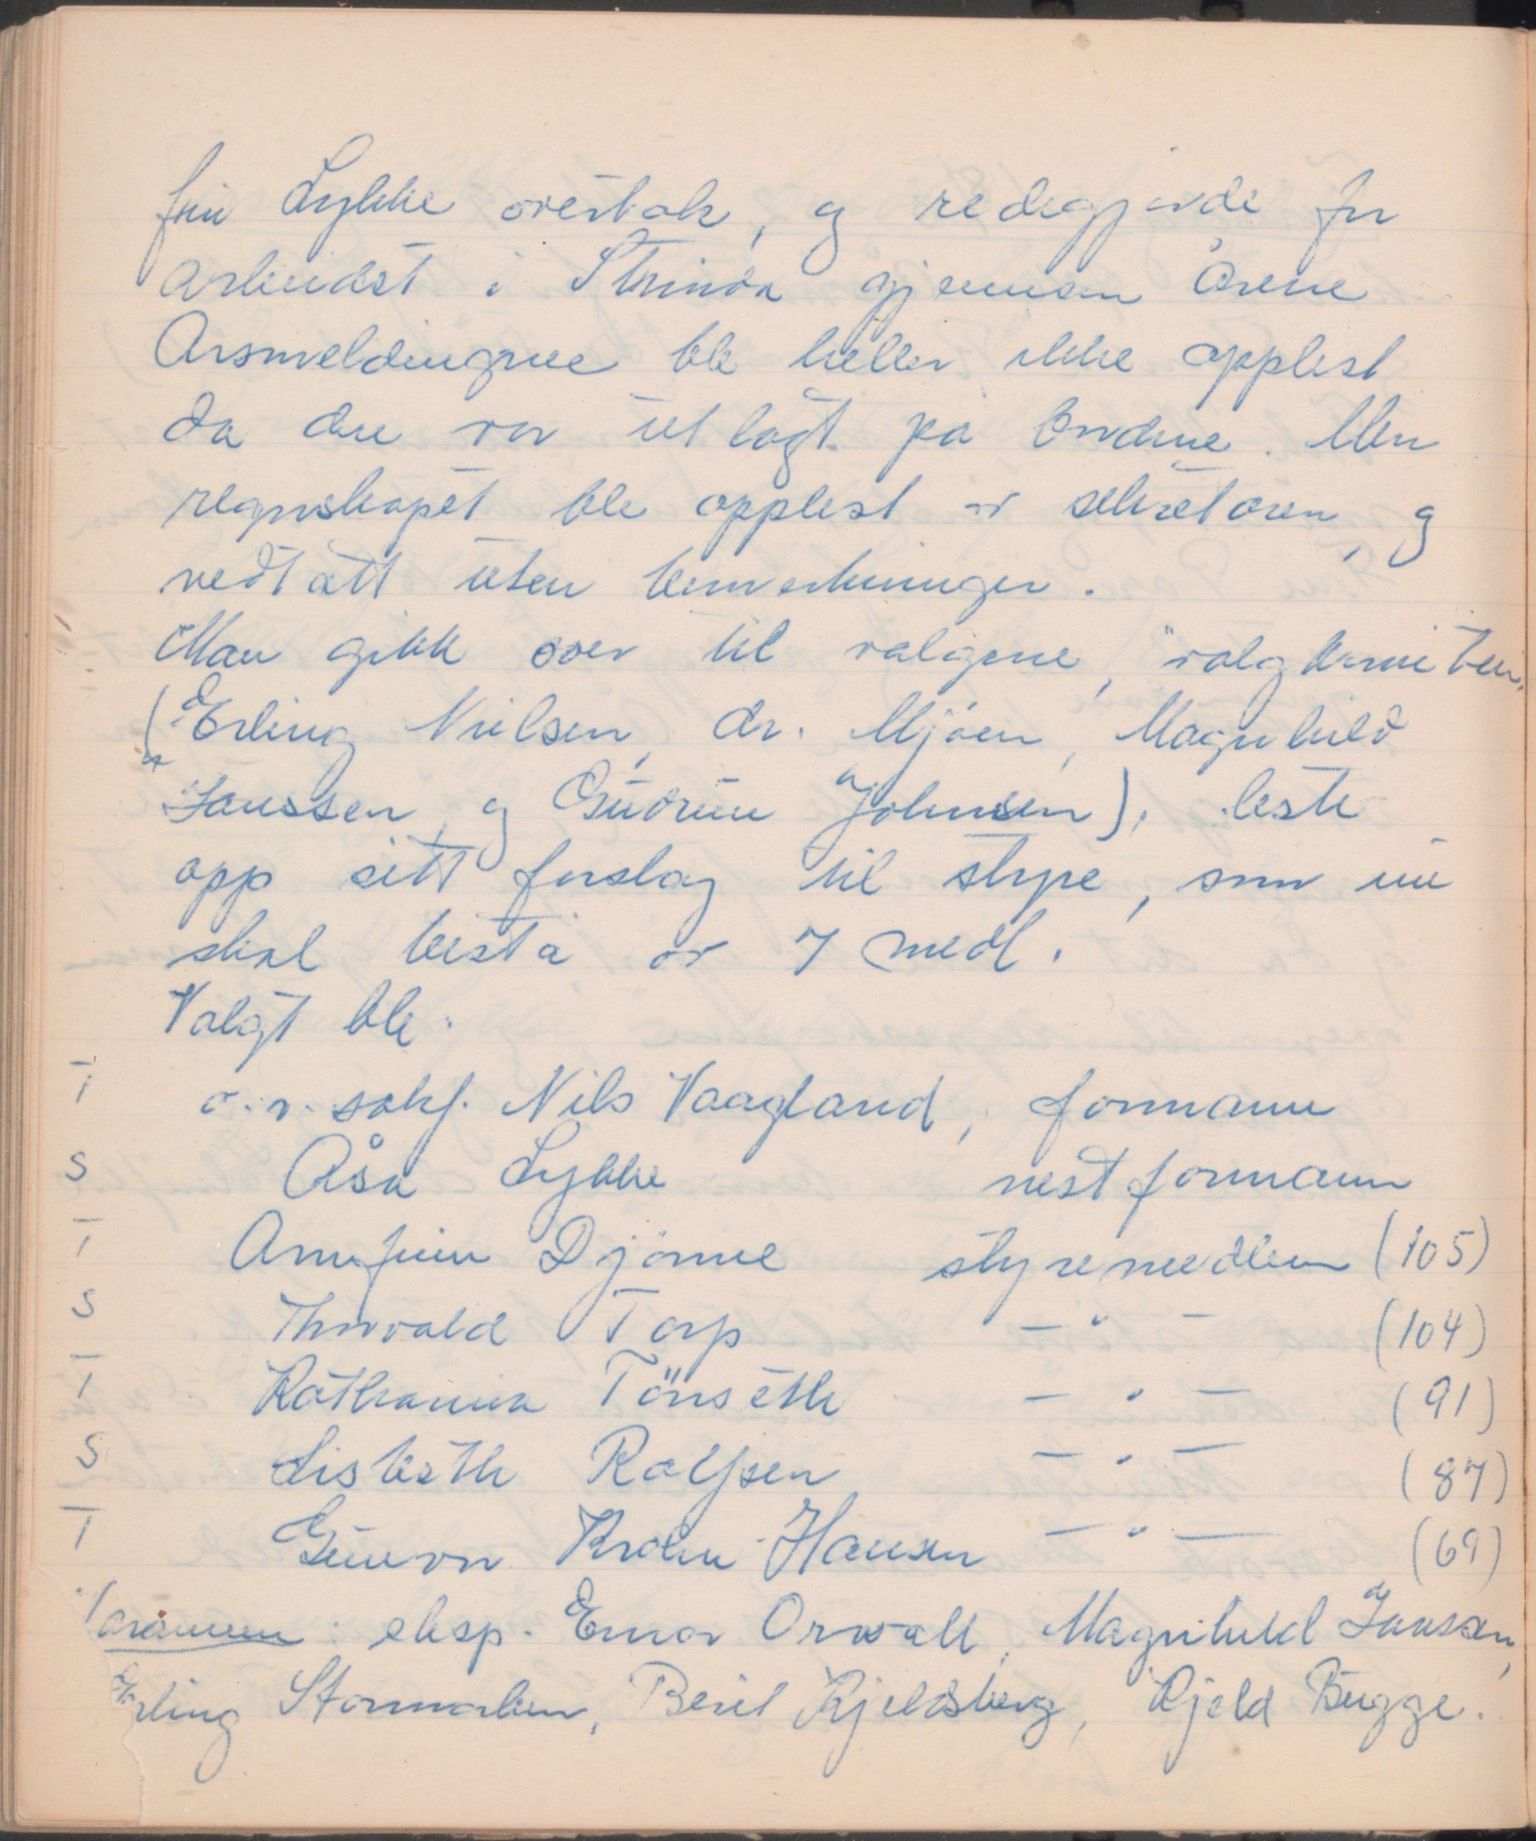 fru Lykke overtok, og redegjorde for
arbeidet i Strinda gjennom årene
Årsmeldingene ble heller ikke opplest
da den var utlagt på bordene. Men
regnskapet ble opplest av sekretæren, og
vedtatt uten bemerkninger.
Man gikk over til valgene, valgkomiteen,
(Erling Nielsen, dr. Mjöen, Magnhild
Janssen og Gudrun Johnsen), leste
opp sitt forslag til styre, som nu
skal bestå av 7 medl.
Valgt ble:
T o.r.sakf. Nils Vaagland, formann
S Åsa Lykke nestformann
T Arnfinn Djönne styremedlem (105)
S Thorvald Torp — " — (104)
T Kathanna Tönseth — " — (91)
S Lisbeth Rolfsen — " — (87)
T Gunvor Krohn-Hansen — " — (69)
Varamenn: eksp. Einar Orvall, Magnhild Jansen,
Erling Stormoken, Beret Kjeldsberg, Kjeld Bugge.